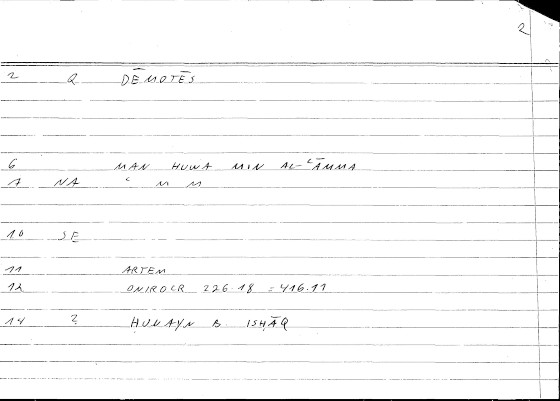 2
2 Q DĒMOTĒS
6 MAN HUWA MIN AL-ʿĀMMA
7 NA ʿ M M
10 SE
11 ARTEM
12 ONIROCR 226.18 = 416.11
14 2 ḤUNAYN B. ISḤĀQ